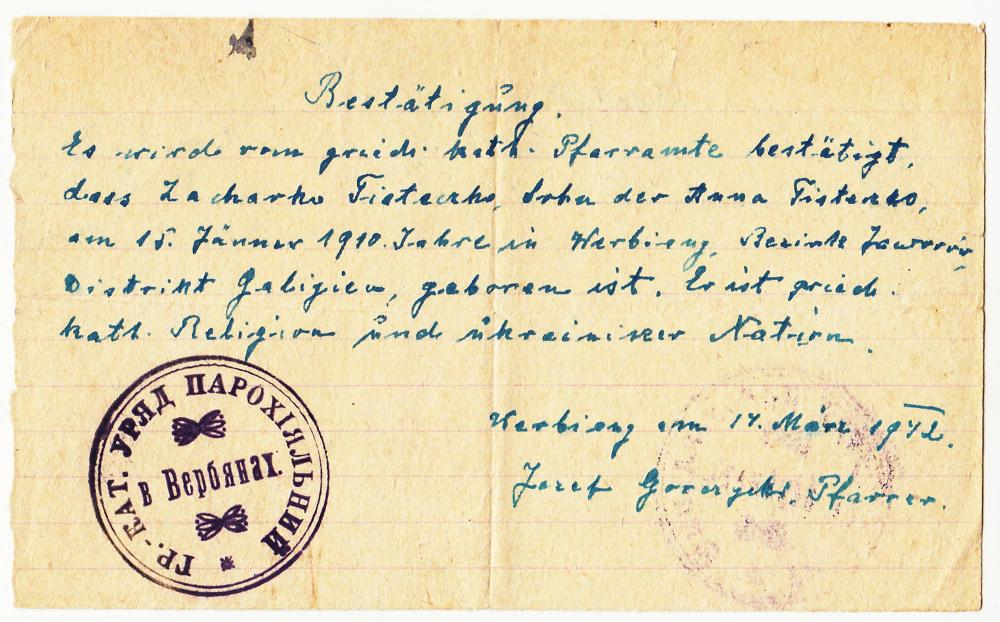 Bestätigung.
Es wird vom griech. kath. Pfarramte bestätigt,
dass Zacharko der Anna
am 15. Jänner 1910. Jahre in Werbiany, Bezirk Jaworów,
Distrikt Galizien, geboren ist. Er ist griech.
kath. Religion und Nation.
ГР.-КАТ. УРЯД ПАРОХІЯЛЬНИЙ
в Вербянах.
Werbiany am März 1942.
Josef Pfarrer.